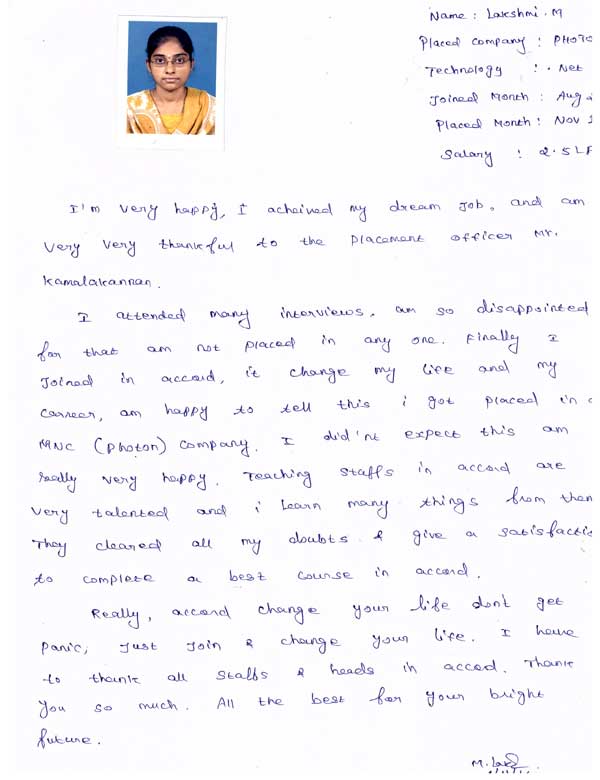 Name : Lakshmi . M
Placed Company : PHOTO
Technology : . Net
Joined Month : Aug
Placed Month : Nov
Salary : 2.5 L
I'm very happy, I acheived my dream Job. and am
very very thankful to the placement officer Mr.
Kamalakannan.
I attended many interviews, am so disappointed
for that am not placed in any one. Finally I
Joined in accord, it change my life and my
carreer, am happy to tell this i got placed in a
MNC (photon) company. I did'nt expect this am
really very happy. Teaching staffs in accord are
very talented and i learn many things from them
They cleared all my doubts & give a satisfactio
to complete a best course in accord.
Really, accord change your life don't get
panic, Just Join & change your life. I have
to thank all staffs & heads in accod. Thank
you so much. All the best for your bright
future.
M. Lak